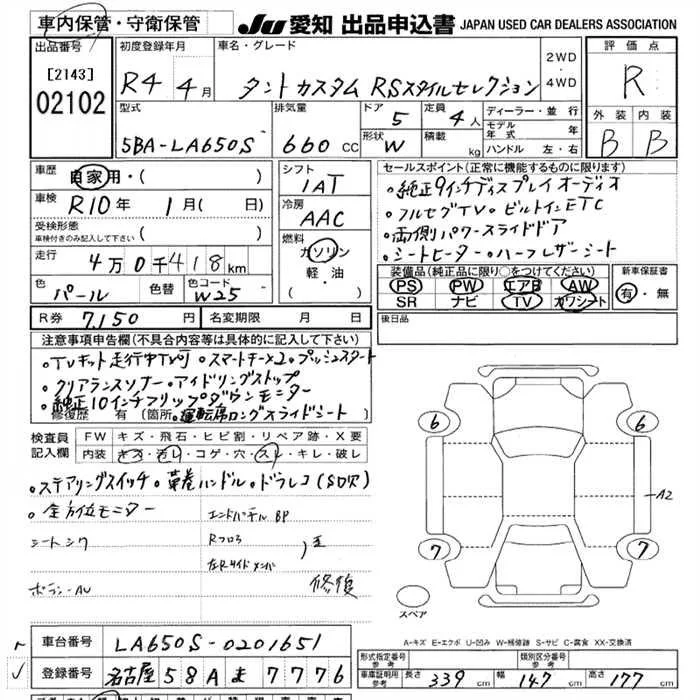 車内保管・守衛保管 JU 愛知 出品申込書 JAPAN USED CAR DEALERS ASSOCIATION
出品番号 初度登録年月 車名・グレード 2WD・4WD 評価点
[2143] 02102 R4 4月 タントカスタム RSスタイルセレクション R
型式 排気量 ドア 5 定員 4人 ディーラー・並行 外装 内装
5BA-LA650S 660cc 形状 W 積載 kg モデル年式 年 B B
ハンドル 左・右
車歴 自家用・( ) シフト セールスポイント(正常に機能するものに限ります)
車検 R10年 1月( 日) 1AT ・純正9インチディスプレイオーディオ
受検形態 車検付きのみ記入して下さい ( ) 冷房 AAC ・フルセグTV・ビルトインETC
走行 4万0千418km 燃料 ガソリン・軽油 ・両側パワースライドドア
・シートヒーター・ハーフレザーシート
色 パール 色替 色コード W25 ( ) 装備品(純正品に限り○をつけてください) 新車保証書
PS PW エアB AW 有・無
SR ナビ TV カワシート
R券 7,150円 名変期限 月 日 後日品
注意事項申告欄(不具合内容等は具体的に記入して下さい)
・TVキット走行中TV可・スマートキー×2・プッシュスタート
・クリアランスソナー・アイドリングストップ
・純正10インチフリップダウンモニター
修復歴 有(箇所 ・運転席ロングスライドシート
検査員記入欄 FW キズ・飛石・ヒビ割・リペア跡・X要
内装 キズ・汚レ・コゲ・穴・スレ・キレ・破レ
・ステアリングスイッチ・革巻ハンドル・ドラレコ(SD欠)
・全方位モニター エンドパネルBP
シートシワ Rフロア
左Rサイドメンバ
修復
6 6
A2
7 7
スペア
A-キズ E-エクボ U-凹み W-補修跡 S-サビ C-腐食 XX-交換済
車台番号 LA650S-0201651
登録番号 名古屋 58A ま 7776
形式指定番号 参考 類別区分番号 参考
車庫証明用 参考 長さ 339cm 幅 147cm 高さ 177cm